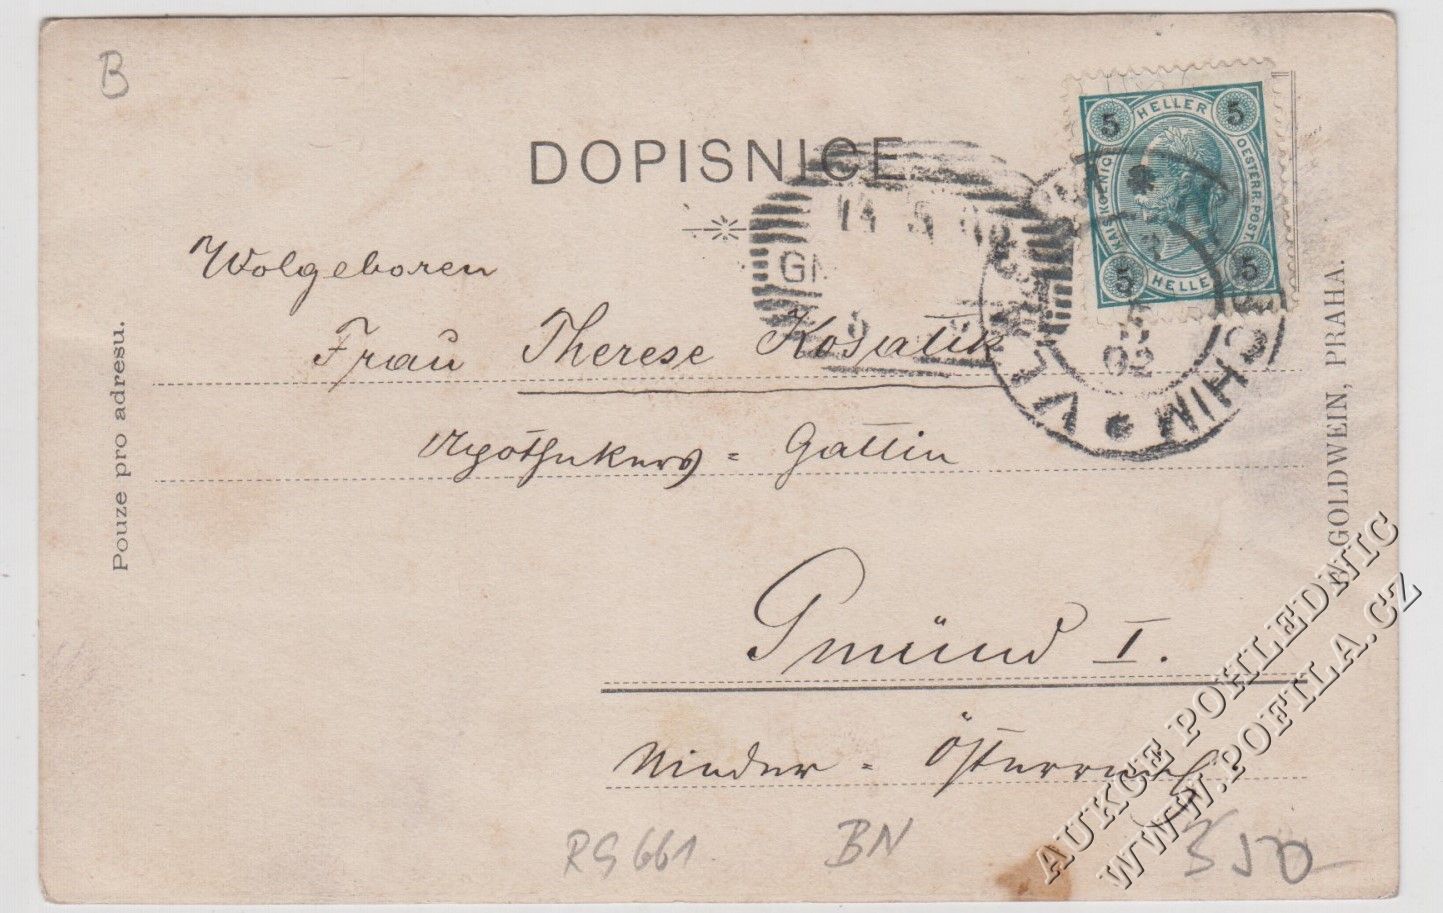 B
DOPISNICE
5 HELLER 5
KAIS. KÖNIG.
OESTERR. POST.
5 HELLER 5
14 5 02
GM
02
VLAŠIM
Wolgeboren
Frau Therese Kosatik
Apothekers = Gattin
Gmünd I.
Nieder = Österreich
Pouze pro adresu.
GOLDWEIN, PRAHA.
RG 661
BN
AUKCE POHLEDNIC
WWW.POFILA.CZ